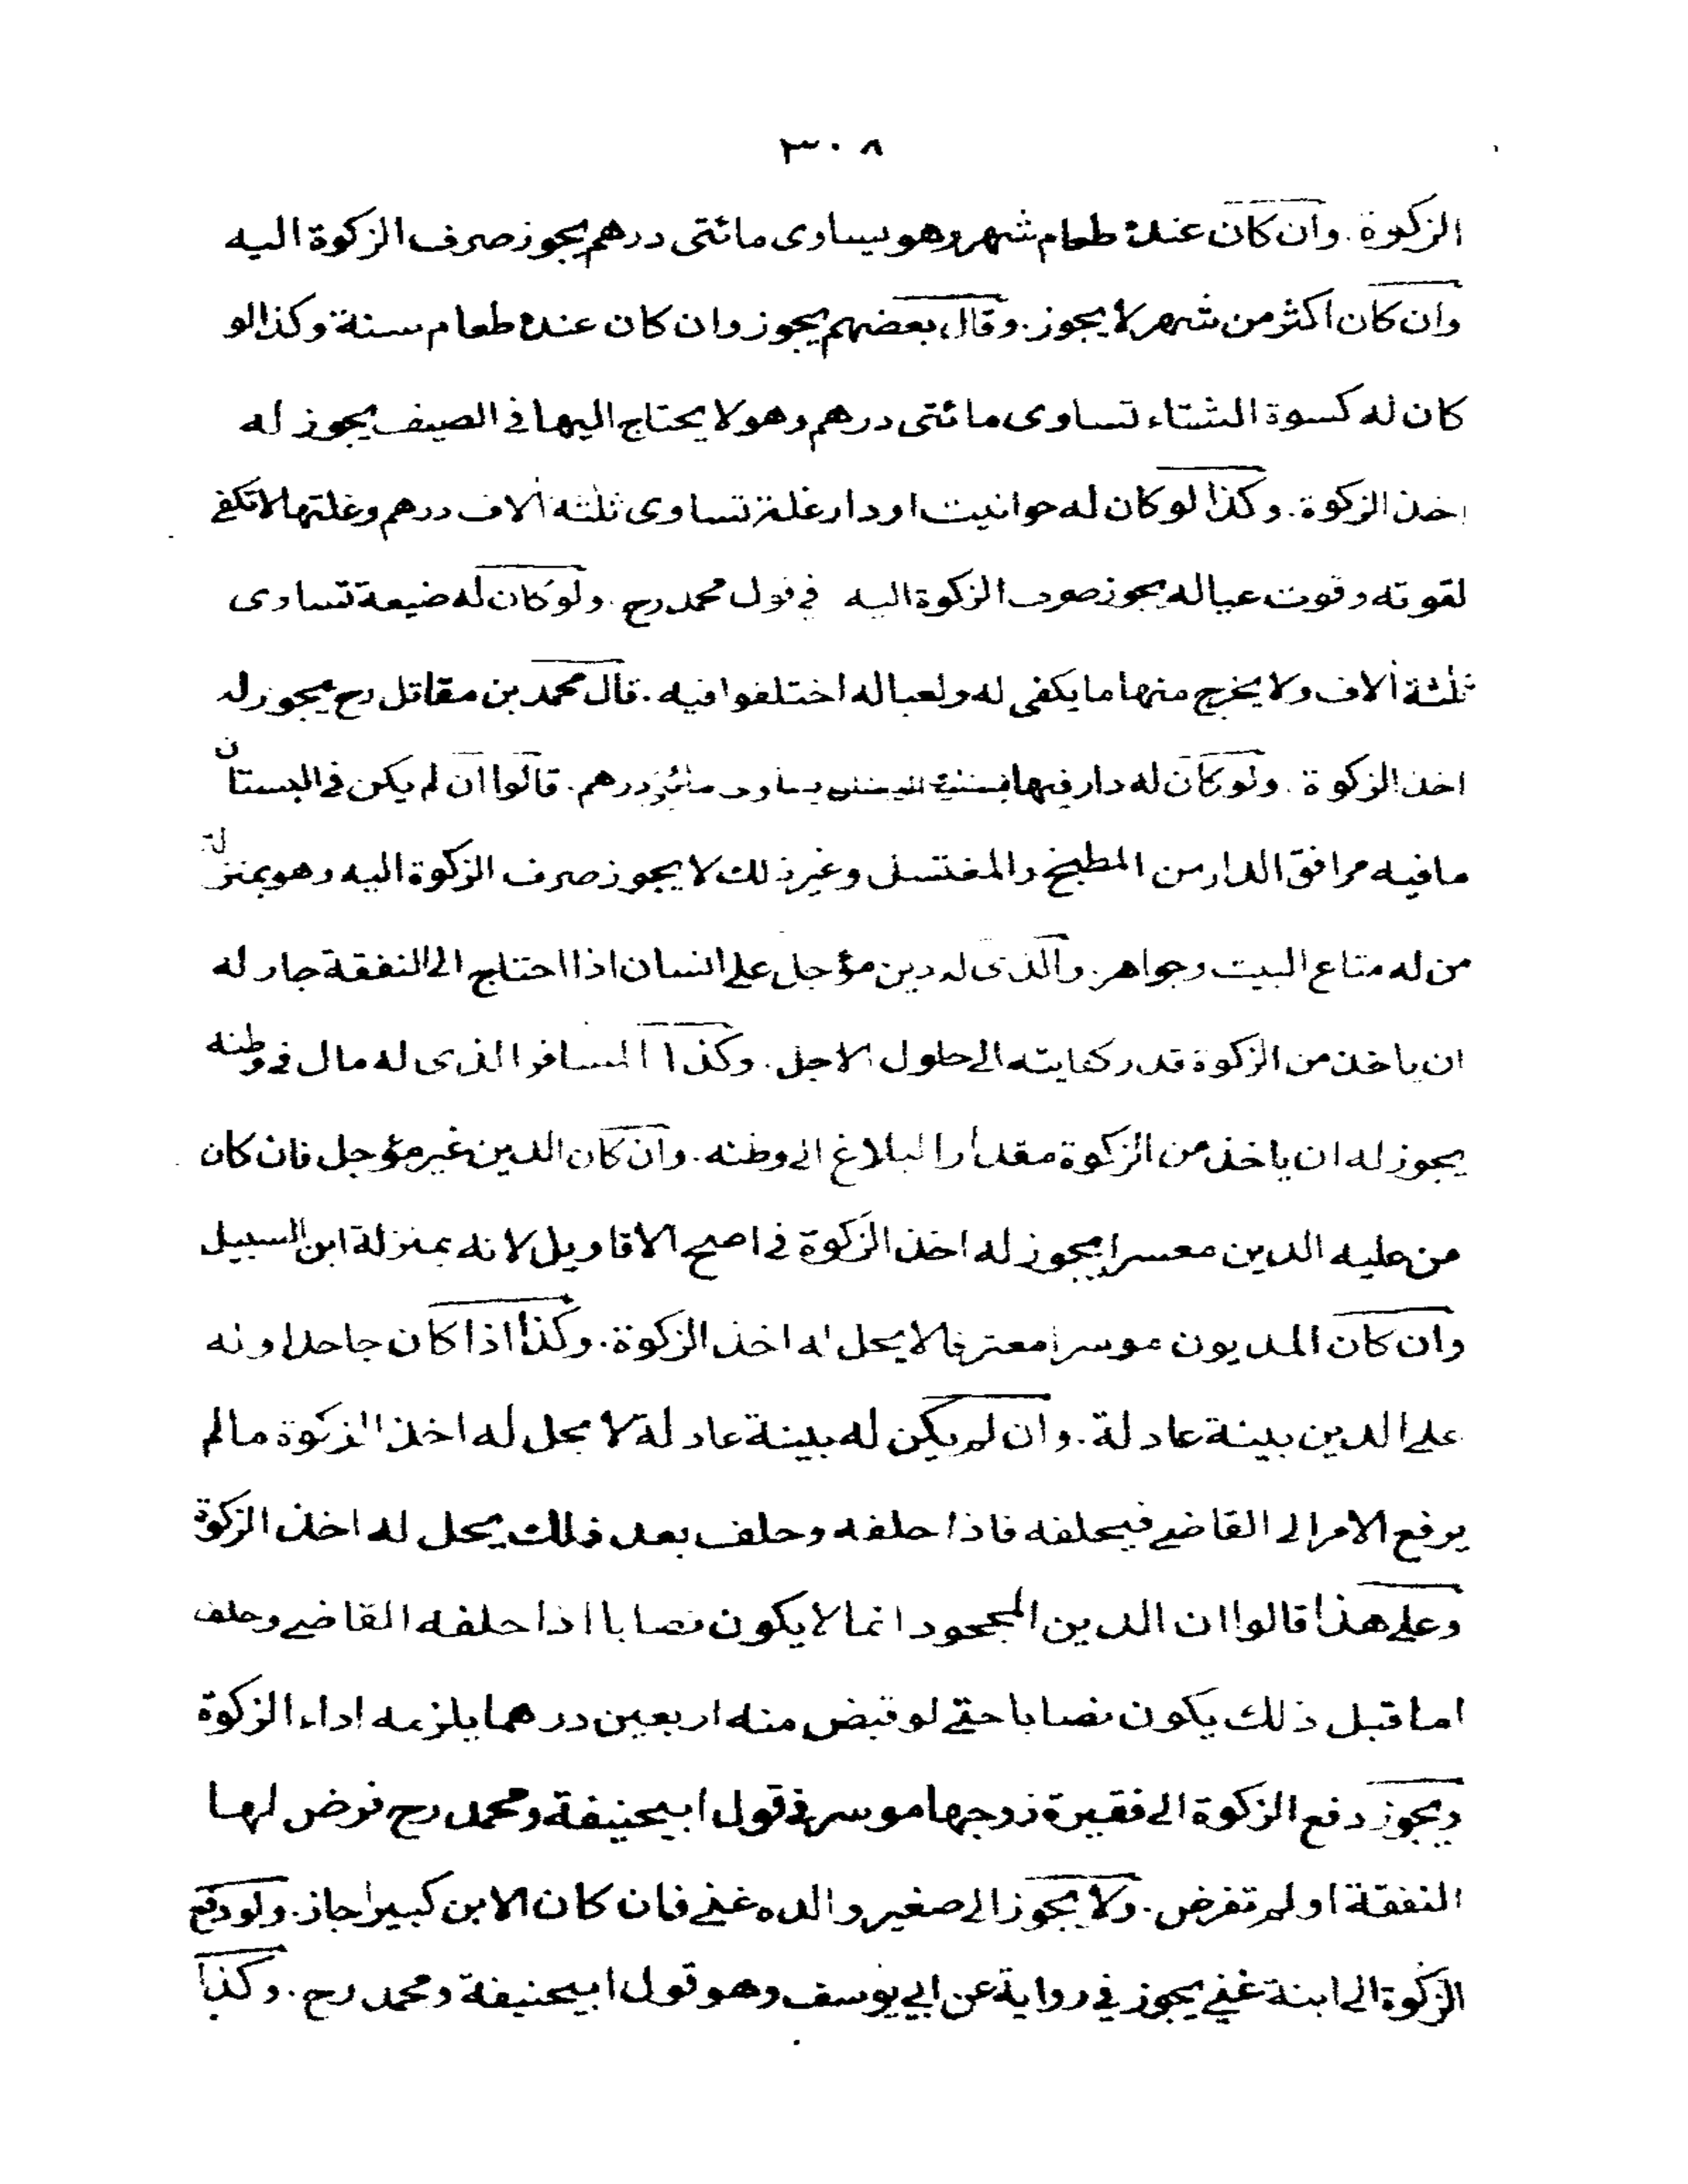 ٣٠٨
الزكوة. وان كان عنده طعام شهر وهو يساوى مائتى درهم يجوز صرف الزكوة اليه
وان كان اكثر من شهر لا يجوز. وقال بعضهم يجوز وان كان عنده طعام سنة وكذا لو
كان له كسوة الشتاء تساوى مائتى درهم وهو لا يحتاج اليها فى الصيف يجوز له
اخذ الزكوة. وكذا لو كان له حوانيت او دار غلة تساوى ثلثة ألاف درهم وغلتها لا تكفى
لقوته وقوت عياله يجوز صرف الزكوة اليه فى قول محمد رح. ولو كان له ضيعة تساوى
ثلثة ألاف ولا يخرج منها ما يكفى له ولعياله اختلفوا فيه. قال محمد بن مقاتل رح يجوز له
اخذ الزكوة. ولو كان له دار فيها بستان يساوى مائتى درهم. قالوا ان لم يكن فى البستان
ما فيه مرافق الدار من المطبخ والمغتسل وغير ذلك لا يجوز صرف الزكوة اليه وهو بمنزلة
من له متاع البيت وجواهر. والذى له دين مؤجل على انسان اذا احتاج الى النفقة جاز له
ان ياخذ من الزكوة قدر كفايته الى حلول الاجل. وكذا المسافر الذى له مال فى وطنه
يجوز له ان ياخذ من الزكوة مقدار البلاغ الى وطنه. وان كان الدين غير مؤجل فان كان
من عليه الدين معسرا يجوز له اخذ الزكوة فى اصح الاقاويل لانه بمنزلة ابن السبيل
وان كان المديون موسرا معترفا لا يحل له اخذ الزكوة. وكذا اذا كان جاحدا وله
على الدين بينة عادلة. وان لم يكن له بينة عادلة لا يحل له اخذ الزكوة ما لم
يرفع الامر الى القاضى فيحلفه فاذا حلفه وحلف بعد ذلك يحل له اخذ الزكوة
وعلى هذا قالوا ان الدين المجحود انما لا يكون نصابا اذا حلفه القاضى وحلف
اما قبل ذلك يكون نصابا حتى لو قبض منه اربعين درهما يلزمه اداء الزكوة
ويجوز دفع الزكوة الى فقيرة زوجها موسر فى قول ابيحنيفة ومحمد رح فرض لها
النفقة او لم تفرض. ولا يجوز الى صغير والده غنى فان كان الابن كبيرا جاز. ولو دفع
الزكوة الى ابنة غنى يجوز فى رواية عن ابى يوسف وهو قول ابيحنيفة ومحمد رح. وكذا